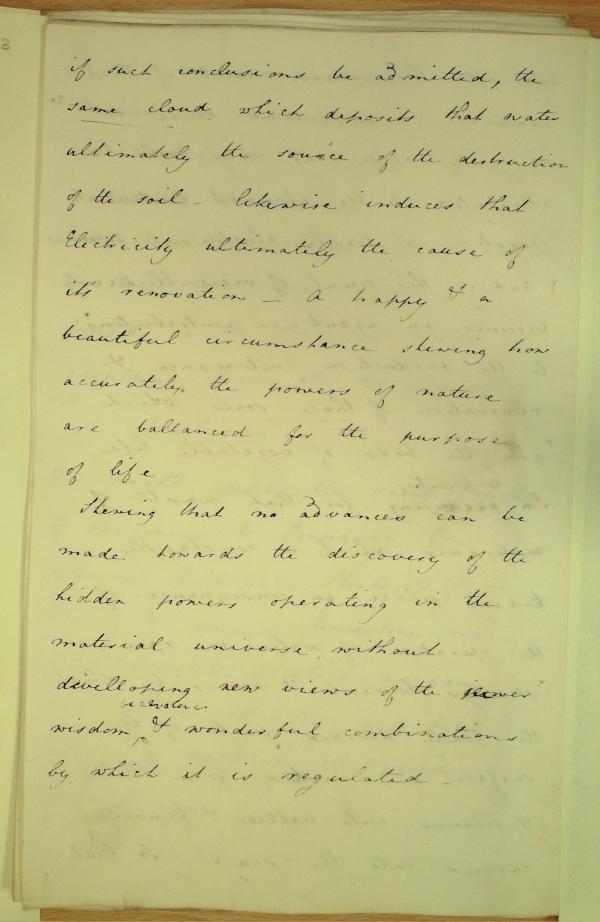 3
if such conclusions be admitted, the
same cloud which deposits that water
ultimately the source of the destruction
of the soil - likewise induces that
Electricity ultimately the cause of
it's renovation - A happy & a
beautiful circumstance shewing how
accurately the powers of nature
are ballanced for the purpose
of life -
Shewing that no advances can be
made towards the discovery of the
hidden powers operating in the
material universe without
divelloping new views of the
wisdom, & wonderful combinations
by which it is regulated -